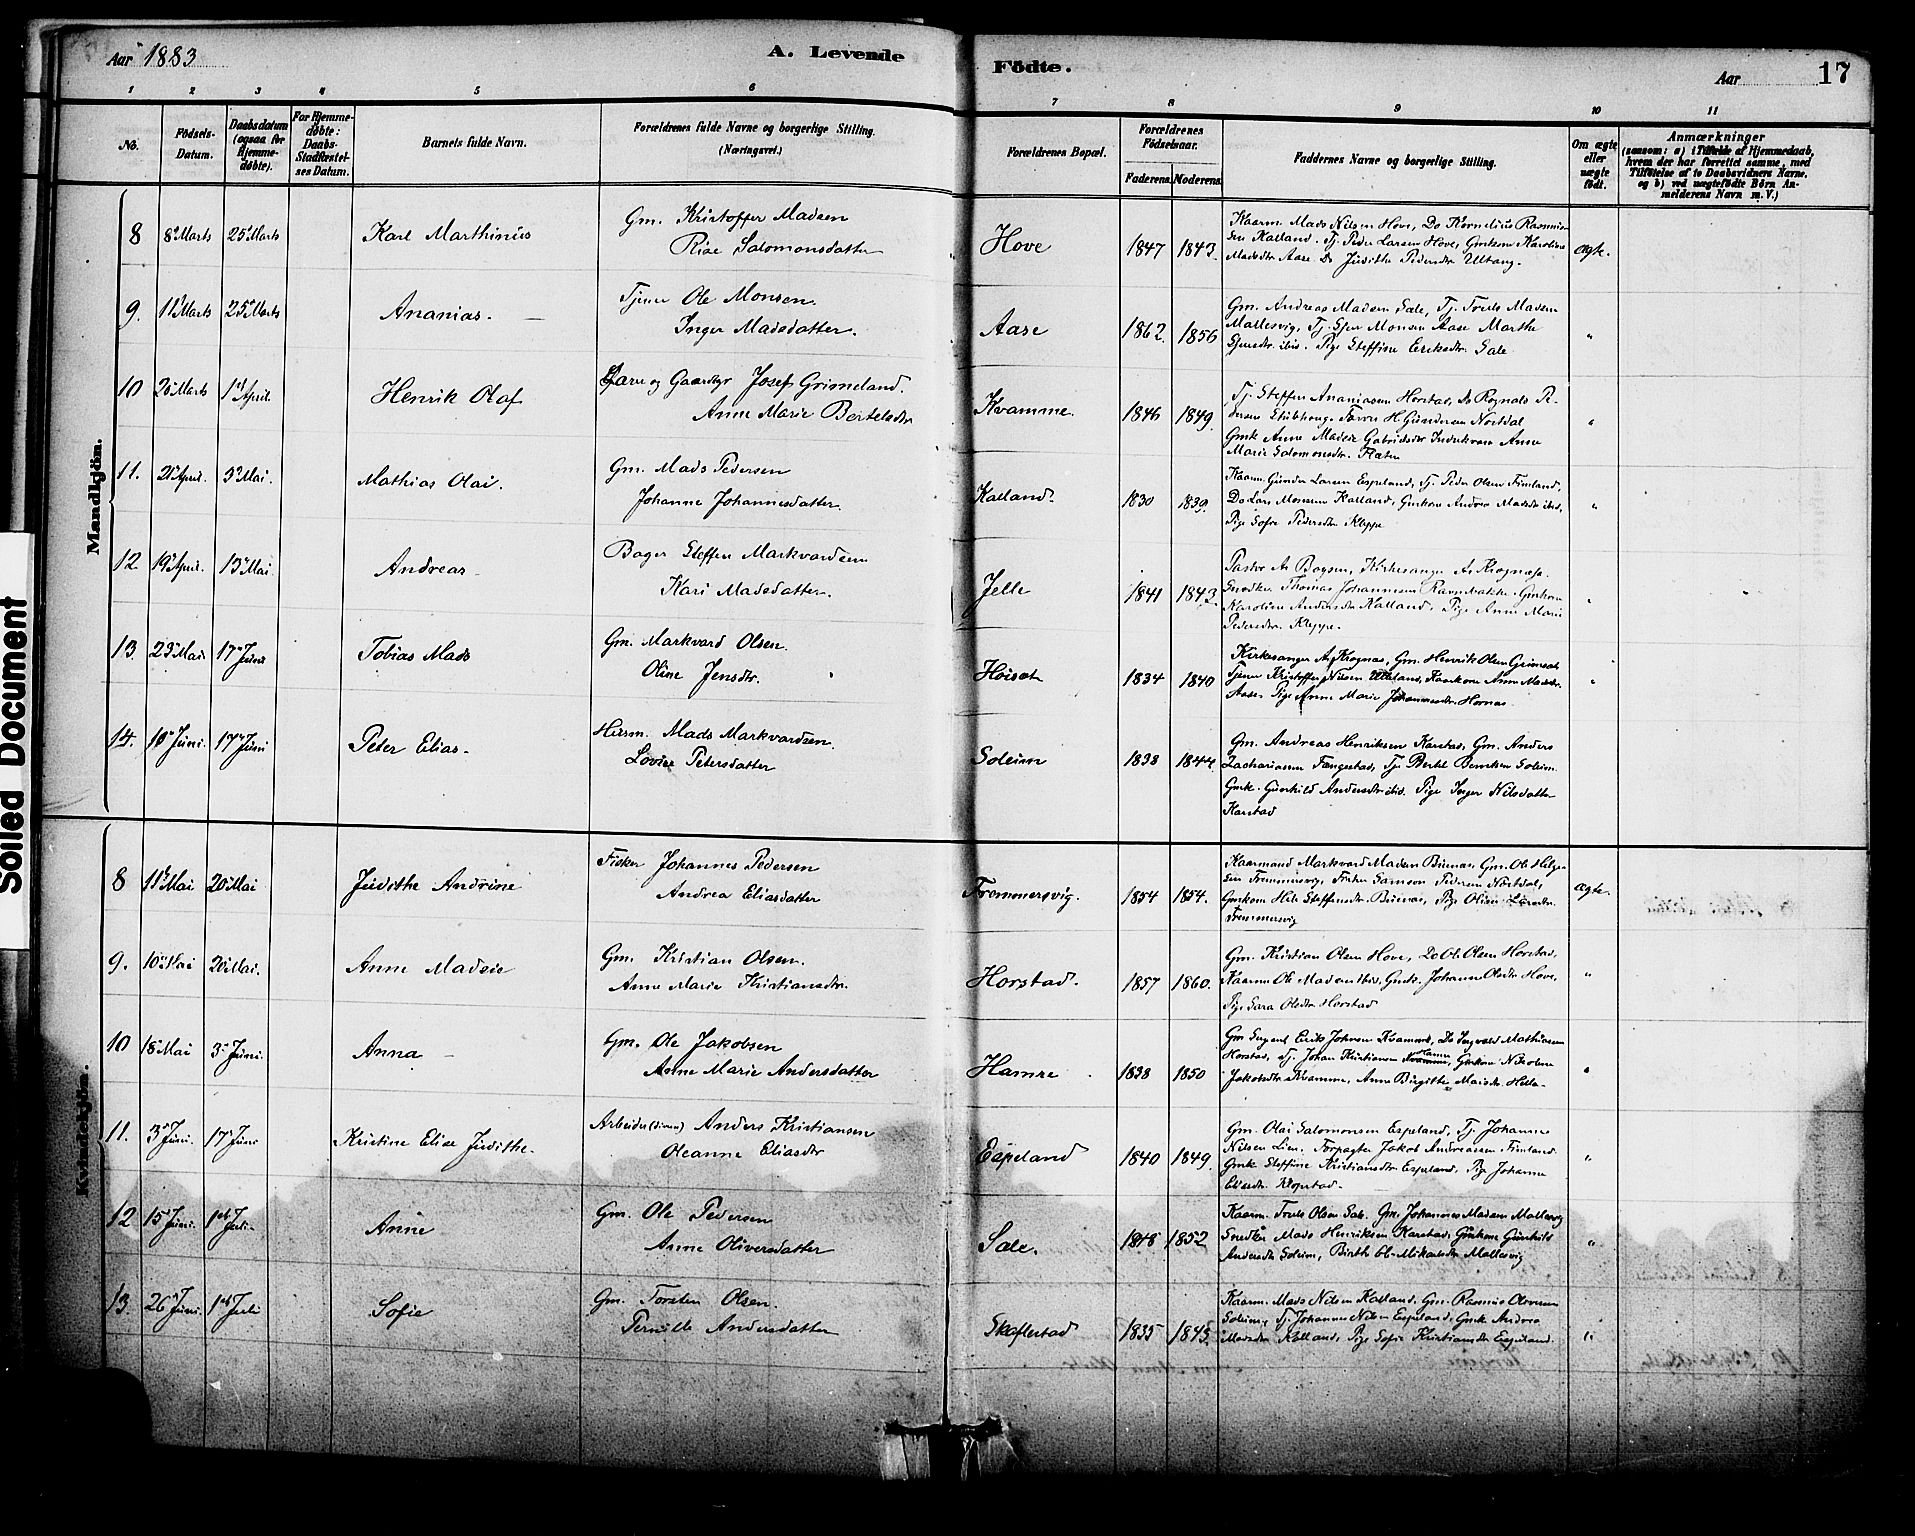 Aar 1883
A. Levende
Födte.
Aar
17
1 2 3 4 5 6 7 8 9 10 11
No.
Födsels-
Datum.
Daabsdatum
(ogsaa for
Hjemme-
döbte).
For Hjemme-
döbte:
Daabs-
Stadfæstel-
ses Datum.
Barnets fulde Navn.
Forældrenes fulde Navne og borgerlige Stilling.
(Næringsvei.)
Forældrenes Bopæl.
Forældrenes
Födselsaar.
Faderens. Moderens.
Faddernes Navne og borgerlige Stilling.
Om ægte
eller
uægte
födt.
Anmærkninger
(saasom: a) i Tilfælde af Hjemmedaab,
hvem der har forrettet samme, med
Tilföielse af to Daabsvidners Navne.
og b) ved uægtefödte Börn An-
melderens Navn m. V.)
Mandkjön.
8 8de Marts 25de Marts Karl Marthinus
Gm. Kristoffer Madsen
Salomonsdatter
Hove 1847 1843.
Kaarm. Mads Nilsen Hove, Do Kornelius Rasmus-
sen Kalland. Tj. Peder Larsen Hove, Gmkone Karoline
Madsdtr Aase Do Judithe Pedersdtr
ægte.
9. 11te Marts 25de Marts Ananias.
Tjener Ole Monsen.
Inger Madsdatter.
Aase 1862. 1856
Gm. Andreas Madsen Sale, Tj. Truls Madsen
Mallesvig, Tj. Monsen Aase Marthe
ibid. Pige Steffine Eriksdtr. Sale
"
10 Marts 1ste April. Henrik Olaf
og Josef Grimeland.
Anne Marie Bertelsdtr
Kvamme. 1846 1849.
Tj. Steffen Ananiassen Horstad, Do Rognald Pe-
dersen H. Gundersen Nordal
Gmk Anne Madsie Gabrielsdtr Anne
Marie Salomonsdtr.
"
11. April. 3die Mai. Mathias Olai.
Gm. Mads Pedersen
Johanne Johannesdatter.
Kalland. 1830 1839.
Kaarm Gunder Larsen Espeland, Tj. Peder Olsen Fimland,
Do Lars Monsen Kalland, Gmkone Andrea Madsdtr ibid,
Pige Sofie Pedersdtr Kleppe
"
12. 19de April. 13de Mai Andreas
Bager Steffen Markvardsen
Kari Madsdatter.
Jelle 1841 1843.
Pastor A. Boysen, Kirkesanger A. Krognæs.
Snedker Thomas Johannessen Gmkone
Karoline Andersdtr Kalland, Pige Anne Marie
Pedersdtr. Kleppe.
"
13. Mai 17de Juni Tobias Mads
Gm. Markvard Olsen.
Oline Jensdtr.
1834 1840
Kirkesanger A. Krognæs, Gm. Henrik Olsen
Tjener Kristoffer Nilsen Kaarkone Anne Madsdtr.
Aase. Pige Anne Marie Johannesdtr Hornæs
"
14. 10de Juni. 17de Juni Peter Elias.
Husm. Mads Markvardsen.
Lovise Petersdatter
Soleim 1838 1844.
Gm. Andreas Henriksen Karstad, Gm. Anders
Zachariassen Fængestad, Tje Bertel Berntsen Soleim.
Gmk. Gunhild Andersdtr ibid. Pige Inger Nilsdatter
Karstad
Kvindekjön.
8 Mai 20de Mai Judithe Andrine
Fisker Johannes Pedersen
Andrea Eliasdatter
Fremmersvig. 1854 1854.
Kaarmand Markvard Madsen Gm. Ole Helge-
sen Fremmersvig, Fisker Samson Pedersen Nordal,
Gmkone Steffensdtr. Pige Olise
Fremmersvig
ægte.
9. 10de Mai 20de Mai. Anne Madsie
Gm. Kristian Olsen.
Anne Marie Kristiansdtr.
Horstad. 1857 1860.
Gm. Kristian Olsen Hove, Do Ole Olsen Horstad,
Kaarm Ole Madsen ibid, Gmk. Johanne Olsdtr Hove,
Pige Sara Olsdtr. Horstad
"
10 18de Mai 3die Juni. Anna
Gm. Ole Jakobsen
Anne Marie Andersdatter
Hamre 1838 1850
Gm Sergent Erik Johnsen Kvamme, Do Ingvald Mathiassen
Horstad, Tj. Johan Kristiansen Kvamme, Hamre Gmkone Nikoline
Jakobsdtr Kvamme, Anne Birgitte
"
11. 3die Juni. 17de Juni Kristine Elise Judithe.
Arbeider Anders Kristiansen
Oleanne Eliasdtr
Espeland 1840 1849.
Gm. Olai Salomonsen Espeland, Tj. Johannes
Nilsen Lien. Forpagter Jakob Andreassen Fimland
Gmk. Steffine Kristiansdtr Espeland, Pige Johanne
Eliasdtr.
"
12 15de Juni. 1ste Juli. Anne
Gm. Ole Pedersen
Anne Oliversdatter
Sale. 1848 1852
Kaarm. Truls Olsen Sale. Gm. Johannes Madsen Mallesvig
Snedker Mads Henriksen Karstad, Gmkone Gunhild
Andersdtr Soleim, Mikaelsdtr Mallesvig
"
13. 26de Juni. 1ste Juli Sofie
Gm. Torsten Olsen.
Pernille Andersdatter
Skaflestad 1835 1843.
Kaarm. Mads Nilsen Kalland, Gm. Rasmus
Soleim, Tj. Johannes Nilsen Espeland, Gmk Andrea
Madsdtr Kalland, Pige Sofie Kristiansdtr Espeland.
"
Soiled Document